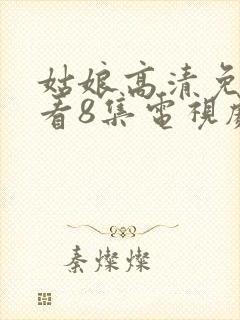 姑娘高清免
看8集電視劇
秦燦燦